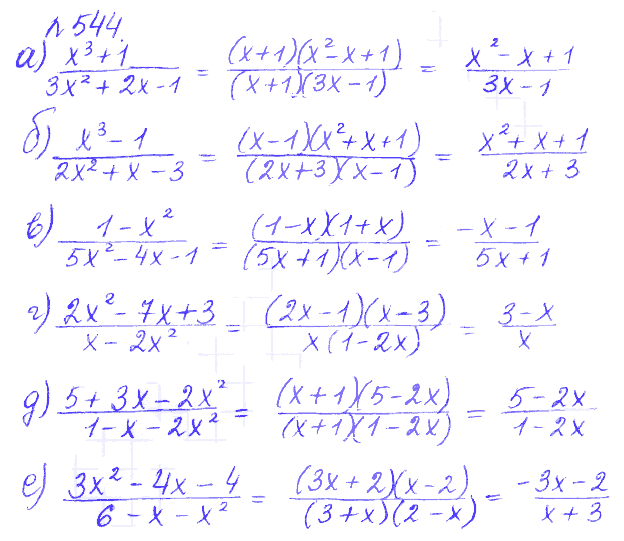 № 544.
а) (x³ + 1)/(3x² + 2x - 1) = ((x+1)(x² - x + 1))/((x+1)(3x - 1)) = (x² - x + 1)/(3x - 1)
б) (x³ - 1)/(2x² + x - 3) = ((x-1)(x² + x + 1))/((2x+3)(x - 1)) = (x² + x + 1)/(2x + 3)
в) (1 - x²)/(5x² - 4x - 1) = ((1-x)(1+x))/((5x+1)(x-1)) = (-x - 1)/(5x + 1)
г) (2x² - 7x + 3)/(x - 2x²) = ((2x-1)(x-3))/(x(1-2x)) = (3 - x)/x
д) (5 + 3x - 2x²)/(1 - x - 2x²) = ((x+1)(5-2x))/((x+1)(1-2x)) = (5 - 2x)/(1 - 2x)
е) (3x² - 4x - 4)/(6 - x - x²) = ((3x+2)(x-2))/((3+x)(2-x)) = (-3x - 2)/(x + 3)